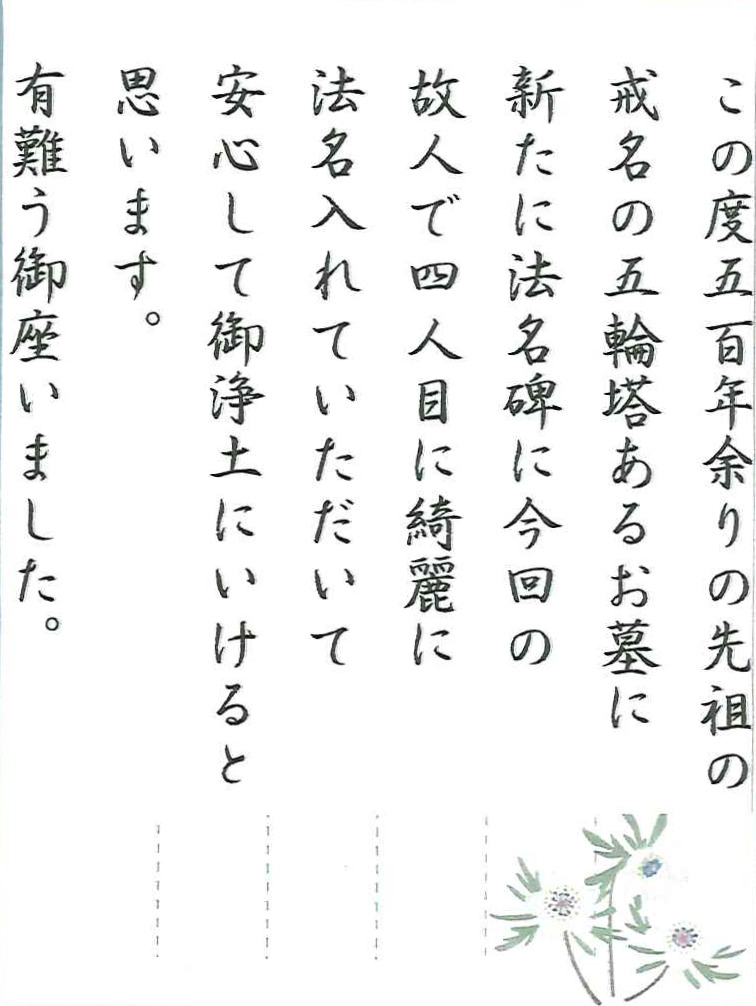 この度五百年余りの先祖の
戒名の五輪塔あるお墓に
新たに法名碑に今回の
故人で四人目に綺麗に
法名入れていただいて
安心して御浄土にいけると
思います。
有難う御座いました。